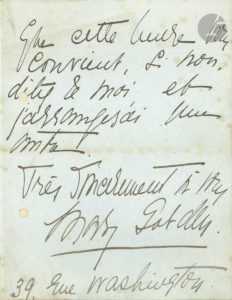 Que cette heure vous
convient, si non,
dites le moi et
j'arrangerai une
autre
Très Sincèrement à vous
Mary Garden.
39, Rue Washington.